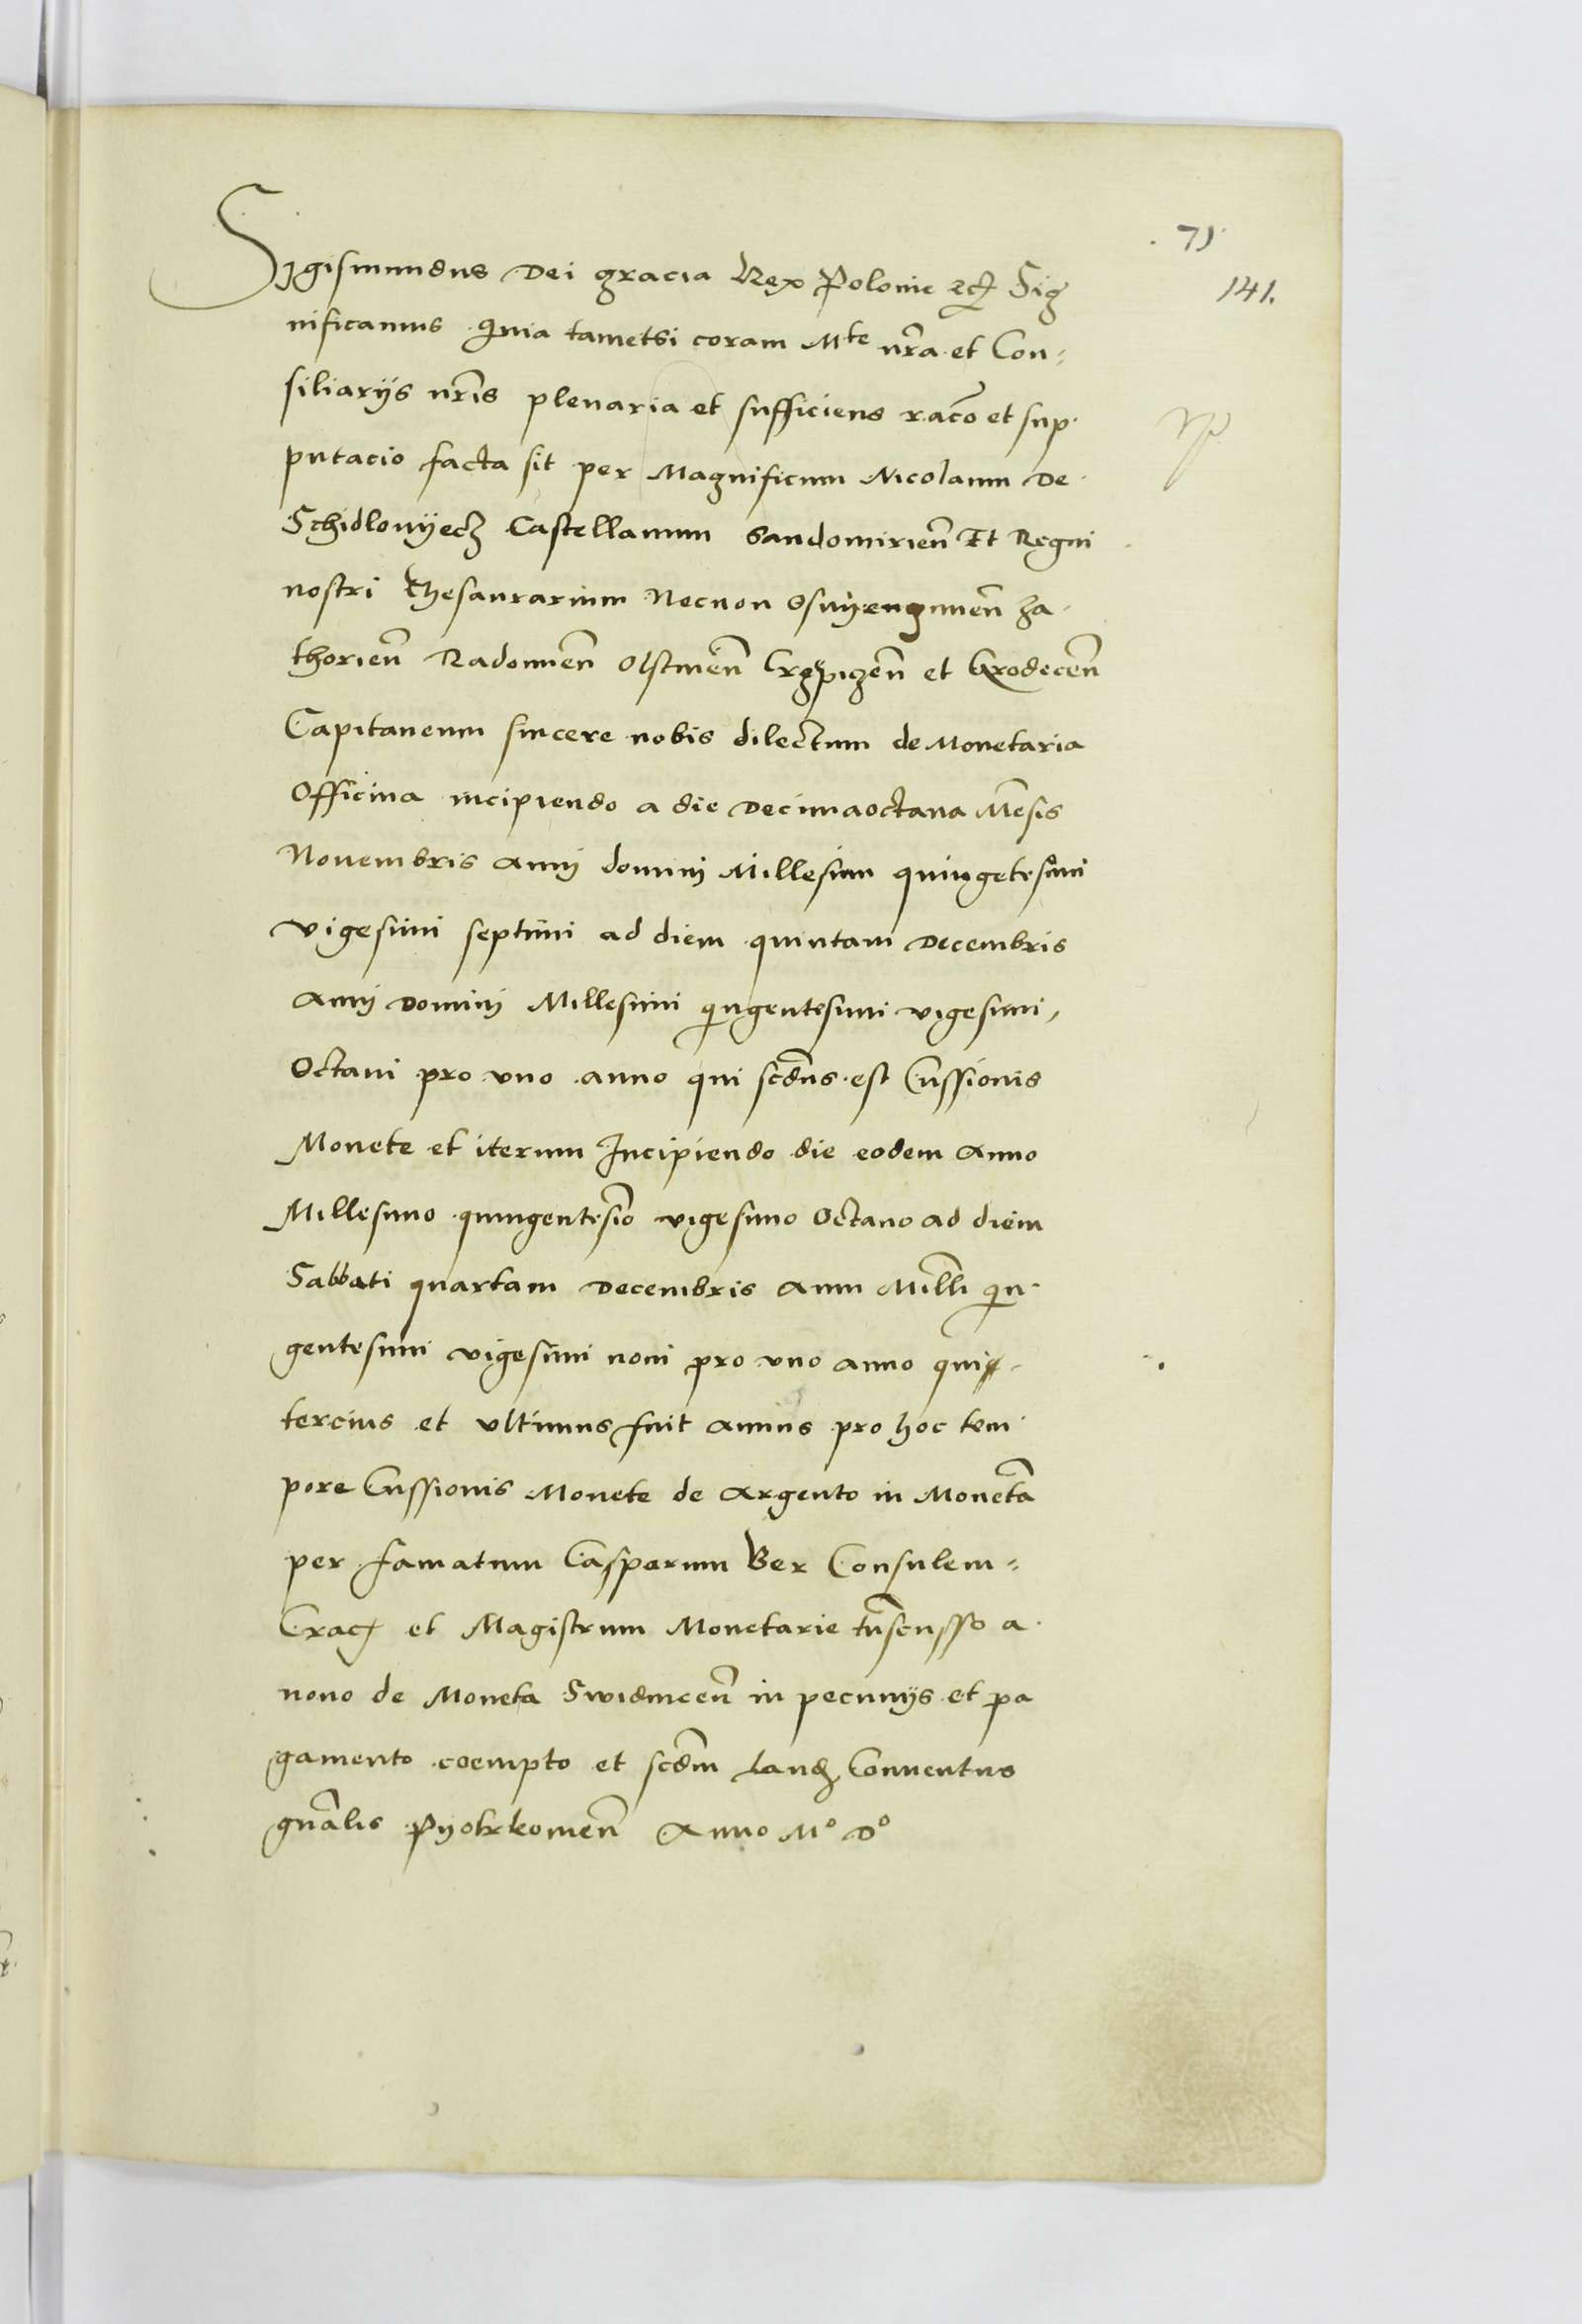 71
141.
Sigismundus Dei gracia Rex Polonie etc Sig
nificamus quia tametsi coram Mte nra et Con=
siliarijs nris plenaria et sufficiens raco et sup
putacio facta sit per Magnificum Nicolaum De
Schidlovyecz Castellanum Sandomirien Et Regni
nostri Thesaurarium Necnon Osvyenczimen Za
thorien Radomien Olstinen Crzepiczen et Grodecen
Capitaneum sincere nobis dilectum de Monetaria
Officina incipiendo a die Decimaoctava Mesis
Novembris Anni domini Millesimi quingetesimi
vigesimi septimi ad diem quintam Decembris
Anni Domini Millesimi qingentesimi vigesimi
Octavi pro uno anno qui scdus est Cussionis
Monete et iterum Incipiendo die eodem Anno
Millesimo quingentesio vigesimo Octavo ad diem
Sabbati quartam Decembris Anni Milli qin
gentesimi vigesimi noni pro uno anno qui
tercius et ultimus fuit annus pro hoc tem
pore Cussionis Monete de Argento in Moneta
per famatum Casparum Ber Consulem=
Crac et Magistrum Monetarie excusso a
novo de Moneta Swidnicen in pecunijs et pa
gamento coempto et scdm Laud Conventus
gnalis Pyotrkovien Anno Mo Do